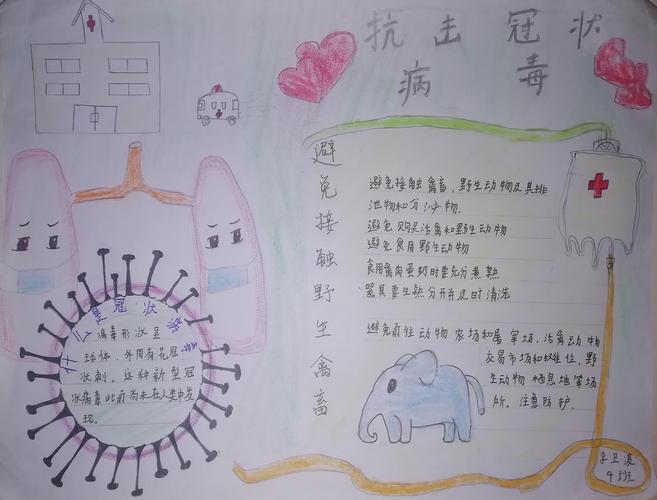 抗击冠状
病毒
避免接触野生禽畜
避免接触禽畜、野生动物及其排
泄物和分泌物.
避免购买活禽和野生动物
避免食用野生动物
食用禽肉蛋奶时要充分煮熟
器具要生熟分开并及时清洗
避免前往动物农场和屠宰场、活禽动物
交易市场和摊位、野
生动物栖息地等场
所。注意防护.
什么是冠状病毒
病毒形状呈
球体、外周有花冠
状刺。这种新型冠
状病毒此前尚未在人类中发
现.
4班